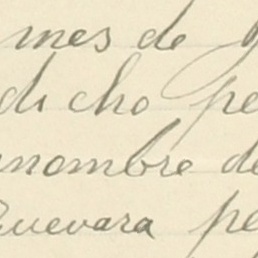 mes de
dicho pe
nombre de
Guevara pe